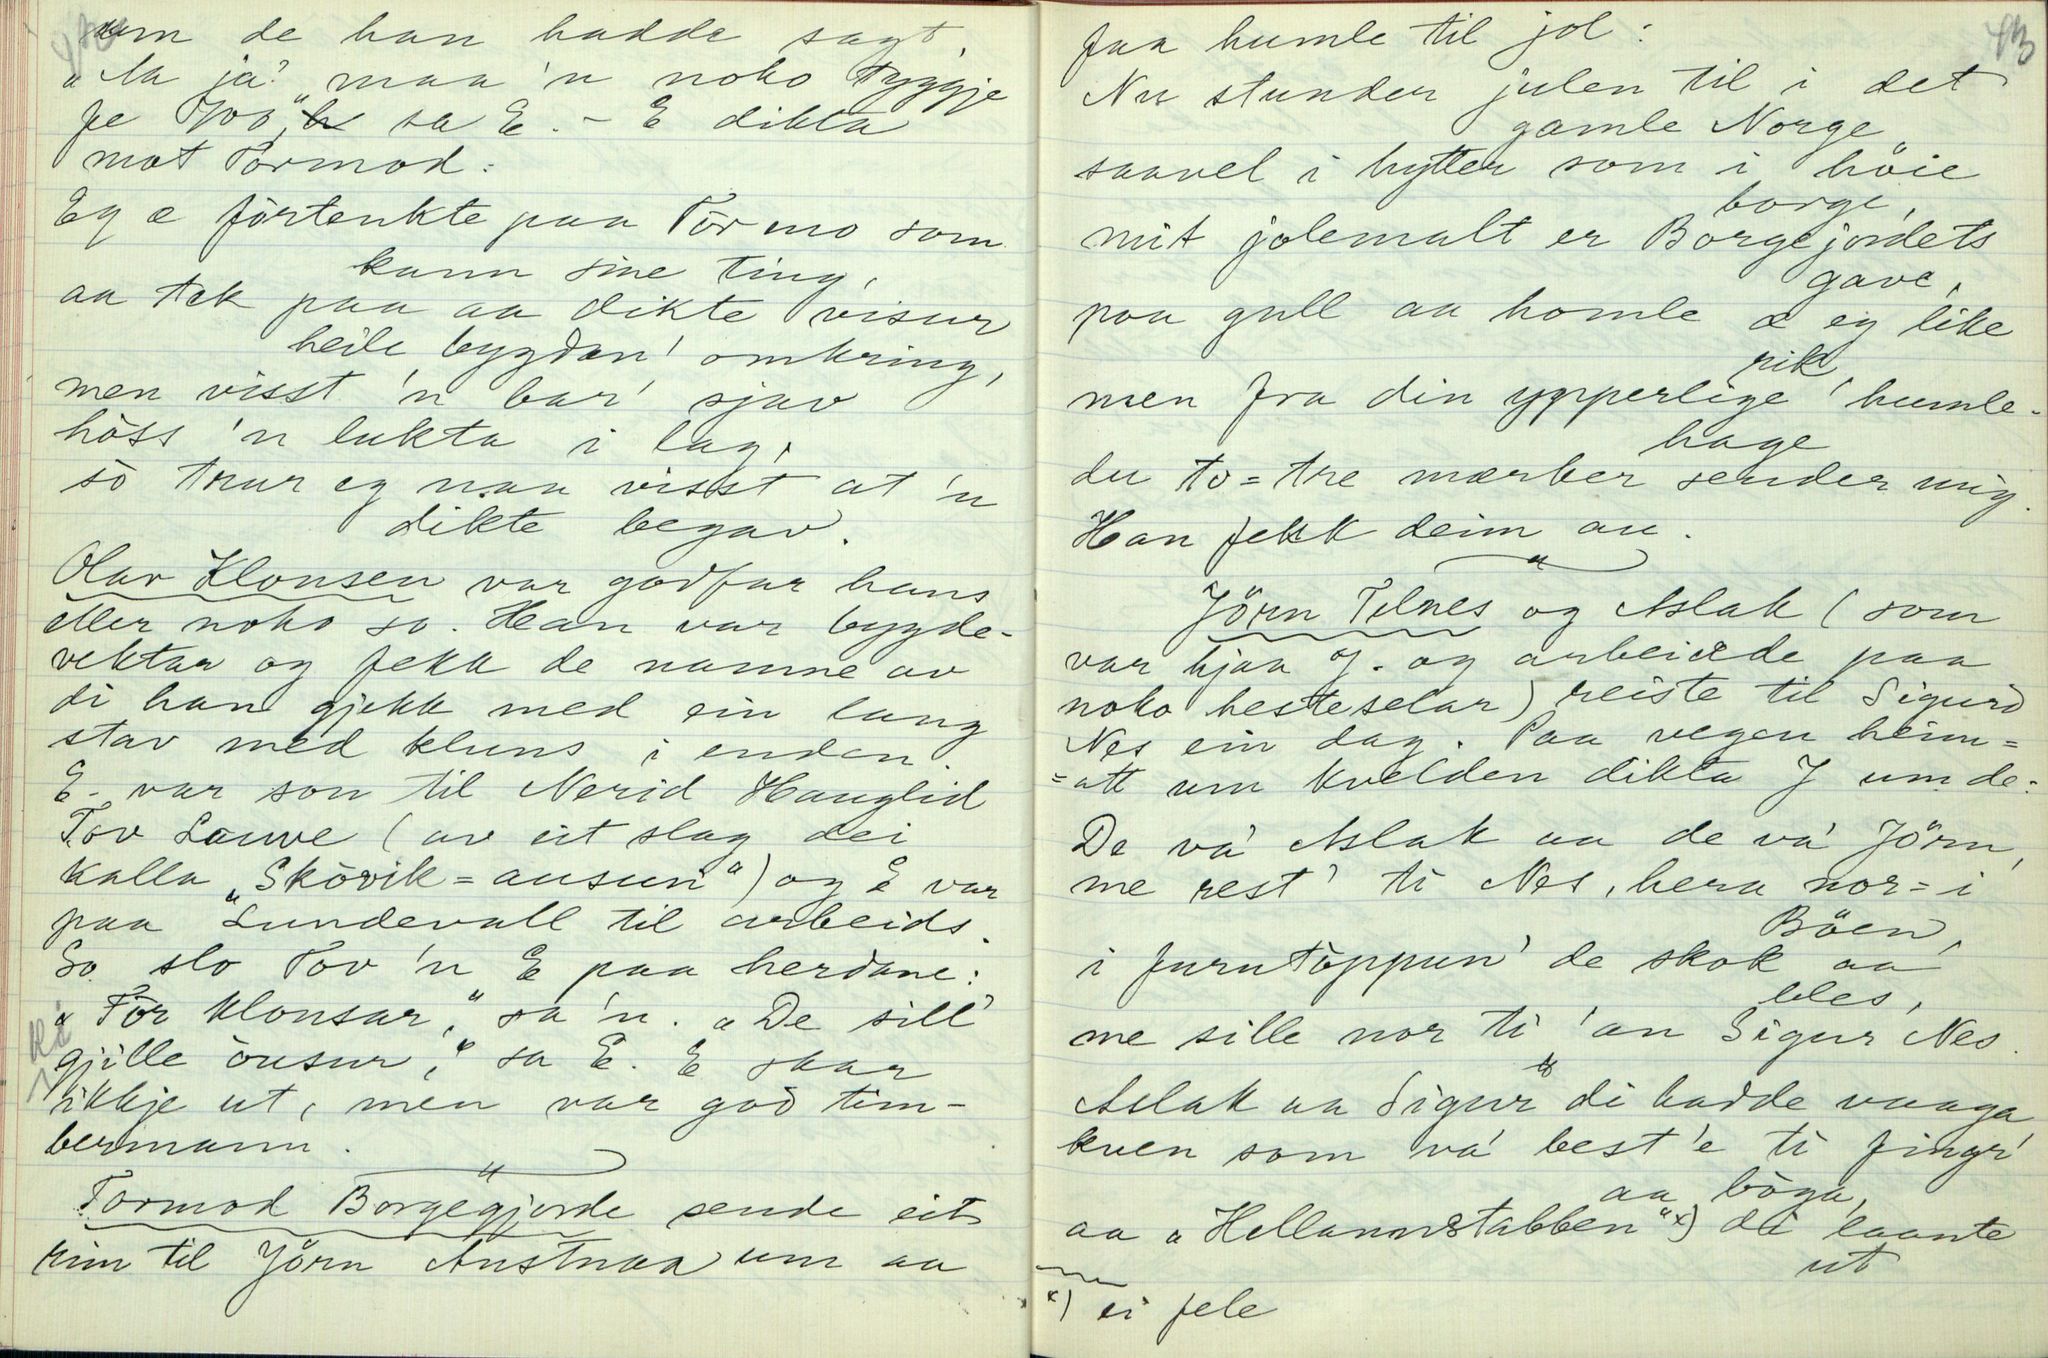 um de han hadde sagt.
"Aa ja" maa 'n noko tyggje
fe Joo", sa E. - E dikta
mot Tormod:
Eg æ fórtenkte paa Tórmo som
kann sine ting,
aa tek paa aa dikte visur
heile bygdan' omkring,
men visst 'n bar' sjav
hòss 'n lukta i lag,
sò trur eg naa visst at 'n
dikte begav.
Olav Klonsen var godfar hans
eller noko so. Han var bygde-
vektar og fekk de namne av
di han gjekk med ein lang
stav med kluns i enden.
E. var son til Nerid Hauglid
Tov Lauve (av eit slag dei
kalla "Skòvik=ausun") og E var
paa Lundevall til arbeids.
So slo Tov 'n E paa herdane:
"Fòr klonsar," sa 'n. "De sill'
gjille òusur," sa E. E skar
ikkje ut, men var god tim-
bermann.
Tormod Borgegjorde sende eit
rim til Jörn Austnaa um aa
43
faa humle til jol:
Nu stunder julen til i det
gamle Norge
saavel i hytter som i höie
borge,
mit jolemalt er Borgejordets
gave,
paa gull aa homle æ eg like
rik
men fra din ypperlige humle-
hage
du to=tre mærker sender mig.
Han fekk deim au.
Jörn Tilnes og Aslak (som
var hjaa J. og arbeidde paa
noko hesteselar) reiste til Sigurd
Nes ein dag. Paa vegen heim=
=att um kvelden dikta J um de:
De va' Aslak aa de va' Jörn,
me rest' ti Nes, hera nor=i
Böen,
i furutòppun' de skok aa
bles,
me sille nor ti 'an Sigur Nes.
Aslak aa Sigur di hadde vaaga
kven som va' best 'e ti fingr'
aa bòga,
aa "Hellannstabben" x) di laante
ut
x) ei fele